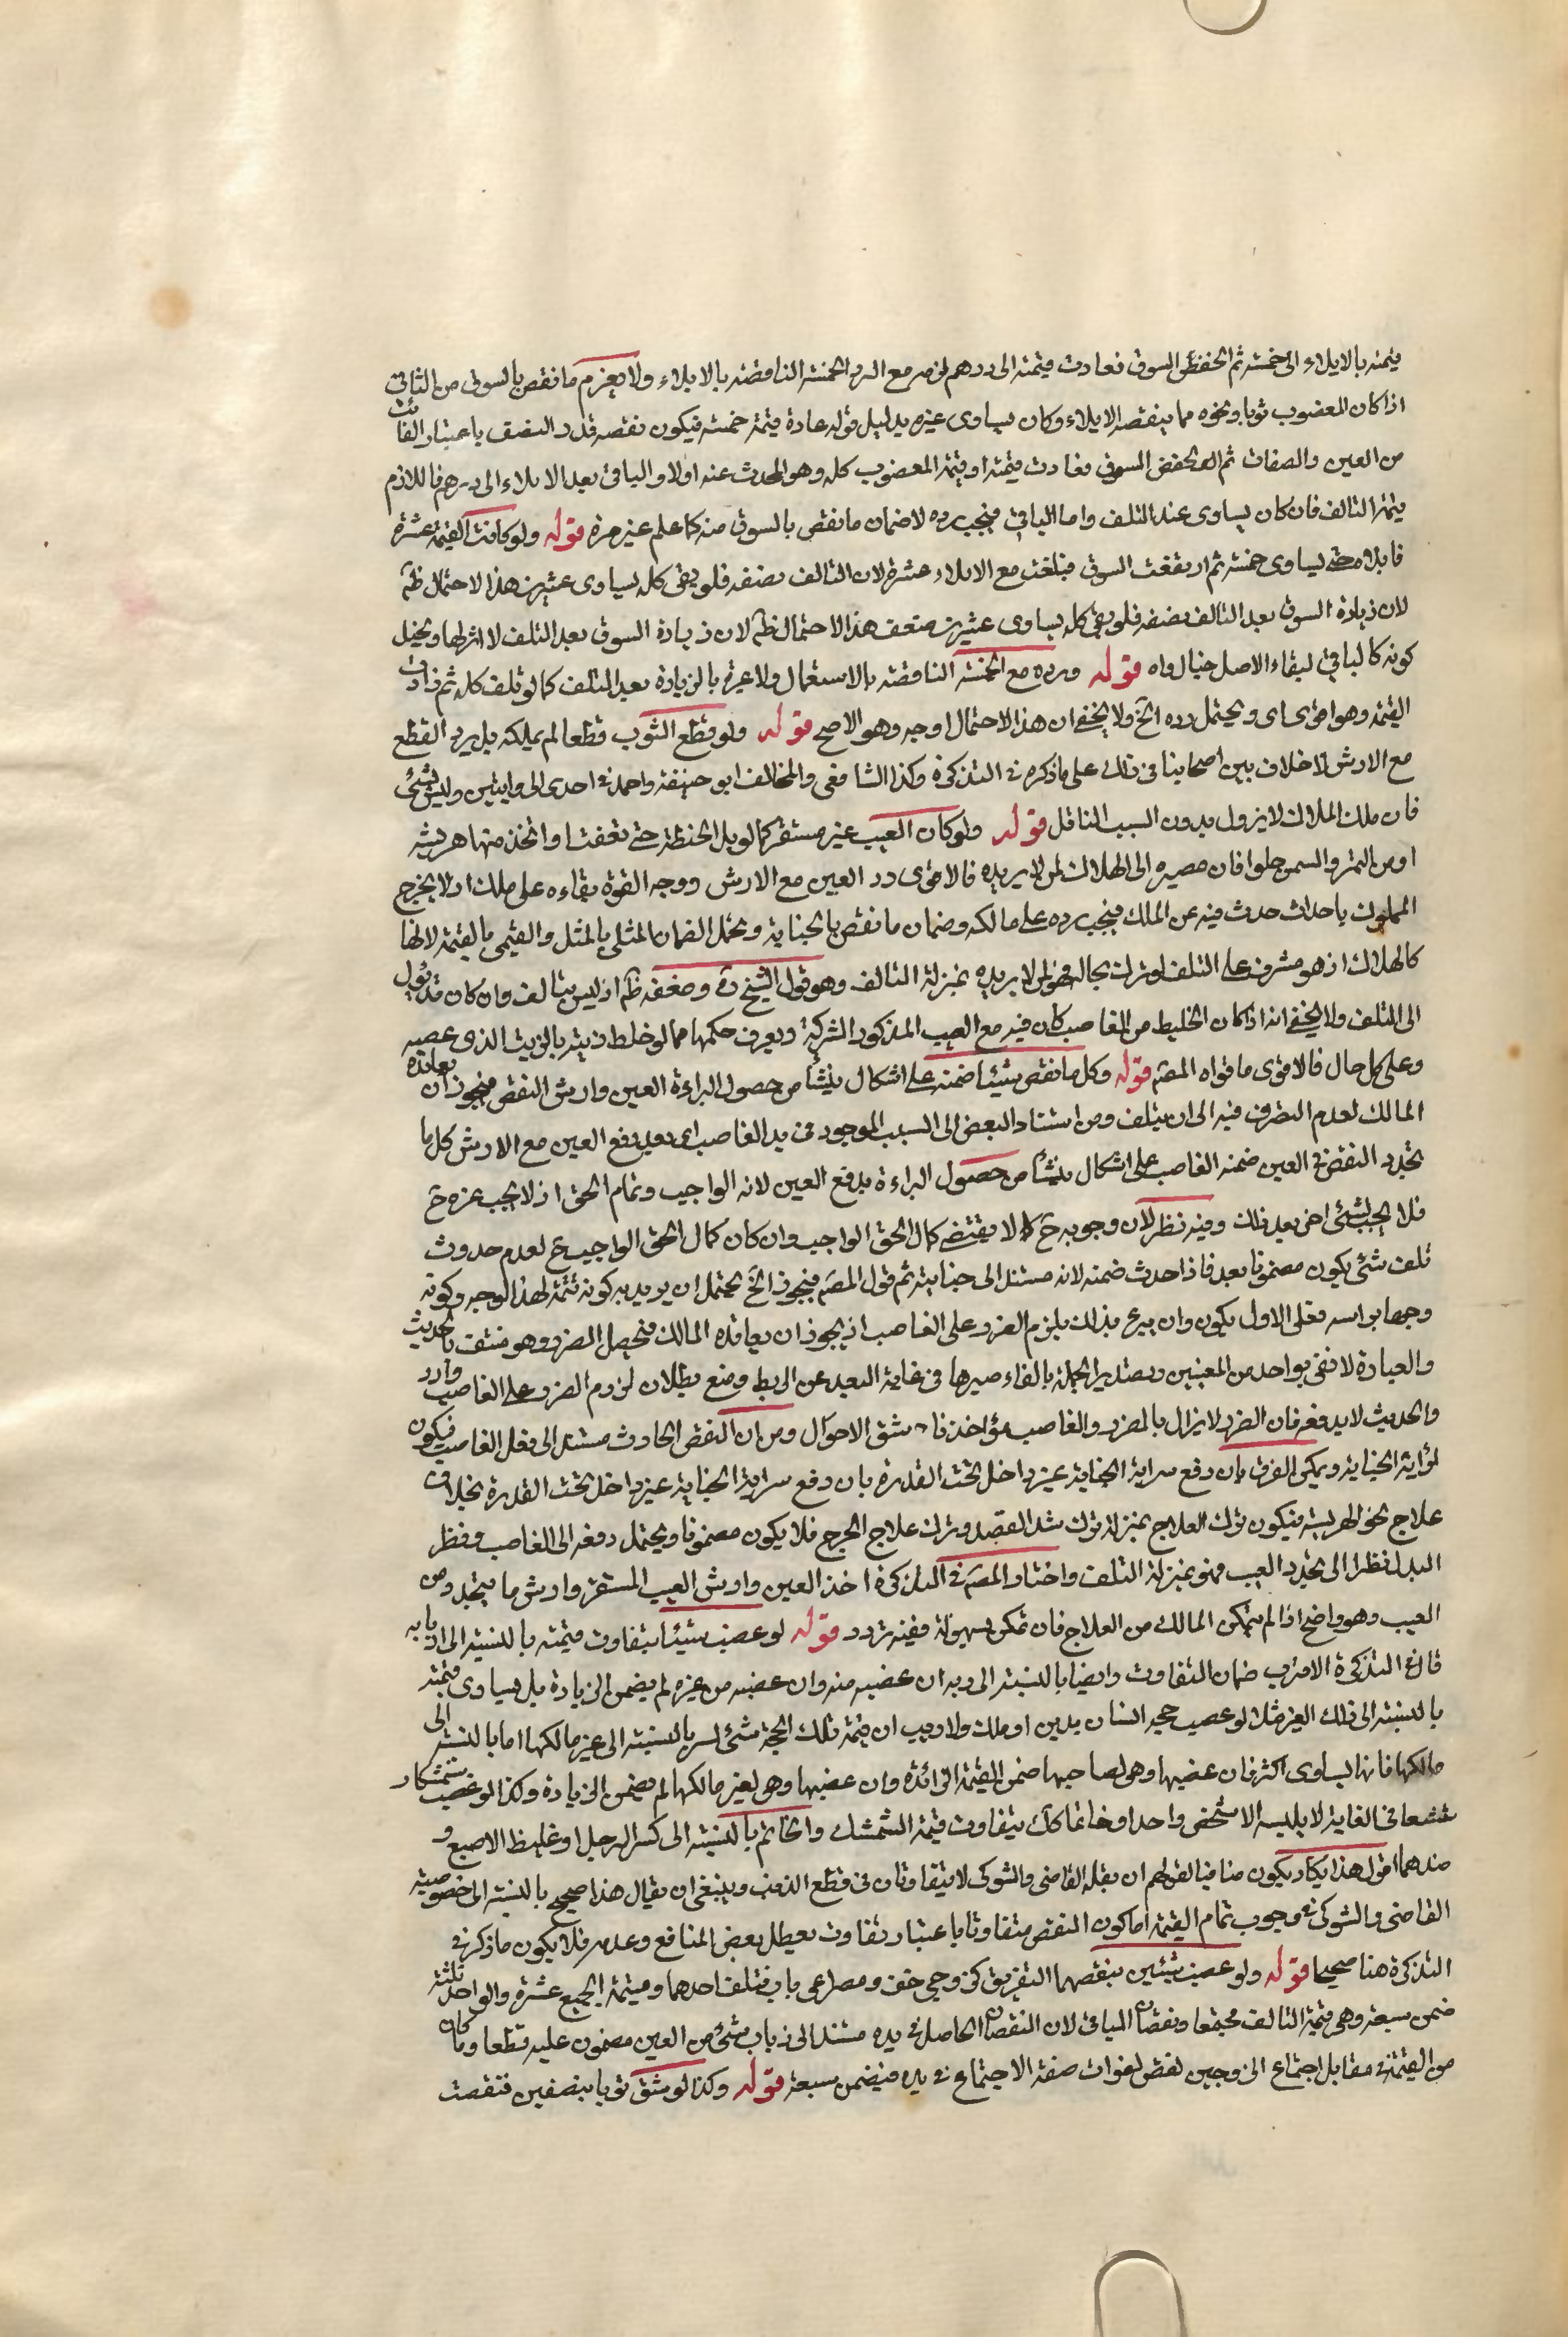 قيمته بالابلاء الى خمسة ثم انخفض السوق فعادت قيمته الى درهم لزمه مع الرد الخمسة الناقصة بالابلاء ولا يغرم ما نقص بالسوق من الباقي
اذا كان المغصوب ثوبا ونحوه مما ينقصه الابلاء وكان يساوى عشرة بدليل قوله عادة قيمته خمسة فيكون نقصه قدر النصف باعتبار الفائت
من العين والصفات ثم انخفض السوق فعادت قيمته او قيمة المغصوب كله وهو المحدث عنه اولا والباقي بعد الابلاء الى درهم فاللازم
قيمة التالف فان كان يساوى عند التلف واما الباقي فيجب رده لا ضمان ما نقص بالسوق منه كما علم غير مرة قوله ولو كانت القيمة عشرة
فابلاه حتى يساوى خمسة ثم ارتفعت السوق فبلغت مع الابلاء عشرة لان التالف نصفه فلو بقى كله يساوى عشرين هذا الاحتمال ظم
لان زيادة السوق بعد التالف نصفه فلو بقى كله يساوى عشرين ضعف هذا الاحتمال ظم لان زيادة السوق بعد التلف لا اثر لها ويخيل
كونه كالباقي لبقاء الاصل خيال واه قوله ورده مع الخمسة الناقصة بالاستعمال ولا عبرة بالزيادة بعد التلف كما لو تلف كله ثم زادت
القيمة وهو اقوى اى ويحتمل رده الخ ولا يخفى ان هذا الاحتمال اوجه وهو الاصح قوله ولو قطع الثوب قطعا لم يملكه بل يرد القطع
مع الارش لا خلاف بين اصحابنا فى ذلك على ما ذكره فى التذكرة وكذا الشافعى والمخالف ابو حنيفة واحمد فى احدى الروايتين وليس بشئ
فان ملك الملاك لا يزول بدون السبب الناقل قوله ولو كان العيب غير مستقر كما لو بل الحنطة حتى تعفنت او اتخذ منها هريسة
او من التمر والسمن حلوا فان مصيره الى الهلاك لمن لا يريده فالاقوى رد العين مع الارش ووجه القوة بقاءه على ملك اذ لا يخرج
المملوك باحداث حدث فيه عن الملك فيجب رده على مالكه وضمان ما نقص بالجناية ويحتمل الضمان المثلى بالمثل والقيمى بالقيمة لانها
كالهلاك اذ هو مشرف على التلف لو ترك بحاله فهو لمن لا يريده بمنزلة التالف وهو قول الشيخ ره وضعفه ظم اذ ليس بتالف وان كان قد يؤل
الى التلف ولا يخفى انه اذا كان الخليط من الغاصب كان فيه مع العيب المذكور الشركة ويعرف حكمها مما لو خلط زيته بالزيت الذى غصبه
وعلى كل حال فالاقوى ما قواه المصم قوله وكل ما نقص شيئا ضمنه على اشكال ينشأ من حصول البراءة العين وارش النقص فيجوز ان يعانده
المالك لعدم التصرف فيه الى ان يتلف ومن استناد البعض الى السبب الموجود فى يد الغاصب اى بعد دفع العين مع الارش كل ما
تجدد النقص فى العين ضمنه الغاصب على اشكال ينشأ من حصول البراءة بدفع العين لانه الواجب وتمام الحق اذ لا يجب غيره ح
فلا يجب لشئ اخر بعد ذلك وفيه نظر لان وجوبه ح لا يقتضى كمال الحق الواجب وان كان كمال الحق الواجب ع لعدم حدوث
تلف شئ يكون مضمونا بعد فاذا حدث ضمنه لانه مستند الى جنايته ثم قول المصم فيجوز الخ يحتمل ان يريد به كونه تتمة لهذا الوجه وكونه
وجها براسه فعلى الاول يكون وان يبرء بذلك يلزم الضرر على الغاصب اذ يجوز ان يعانده المالك فيحصل الضرر وهو منتف بالحديث
والعبارة لا تفى بواحد من المعنيين وتصدير الجملة بالفاء صيرها فى غاية البعد عن الربط ومنع بطلان لزوم الضرر على الغاصب وارد
والحديث لا يدفعه فان الضرر لا يزال بالضرر والغاصب مؤاخذ باشق الاحوال ومن ان النقص الحادث مستند الى فعل الغاصب فيكون
لؤاية الجناية ويمكن الفرق بان دفع سراية الجناية غير داخل تحت القدرة بان دفع سراية الجناية غير داخل تحت القدرة بخلاف
علاج نحو الهريسة فيكون ترك العلاج بمنزلة ترك شد الفصد وترك علاج الجرح فلا يكون مضمونا ويحتمل دفعه الى الغاصب وفظر
البدل نظرا الى تجدد العيب فهو بمنزلة التلف واختار المصم فى التذكرة اخذ العين وارش العيب المستقر وارش ما يتجدد من
العيب وهو واضح اذا لم يتمكن المالك من العلاج فان تمكن بسهولة ففيه تردد قوله لو غصب شيئا يتفاوت قيمته بالنسبة الى اربابه
قال فى التذكرة الاقرب ضمان التفاوت وايضا بالنسبة الى ربه ان غصبه منه وان غصبه من غيره لم يضمن الزيادة بل يساوى قيمته
بالنسبة الى ذلك الغير مثلا لو غصب حجر انسان بدين او ملك ولا ريب ان قيمة تلك الحجة شئ يسر بالنسبة الى غير مالكها اما بالنسبة الى
مالكها فانها يساوى اكثر فان غصبها وهى لصاحبها ضمن القيمة الزائدة وان غصبها وهى لغير مالكها لم يضمن الزيادة وكذا لو غصب شمشكا
شسعا فى الغاية لا يلبسه الا شخص واحد او خاتما كك يتفاوت قيمة الشمشك والخاتم بالنسبة الى كبير الرجل او غليظ الاصبع و
ضدهما اقول هذا يكاد يكون منافيا لقولهم ان بغلة القاضى والشوكى لا يتفاوتان فى قطع الذنب وينبغى ان يقال هذا صحيح بالنسبة الى خصوصية
القاضى والشوكى فى وجوب تمام القيمة اما كون النقص متفاوتا باعتبار تفاوت تعطيل بعض المنافع وعدمه فلا يكون ما ذكر فى
التذكرة هنا صحيحا قوله ولو غصب شيئين ينقصهما التفريق كزوجى خف ومصراعى باب فتلف احدهما وقيمة الجميع عشرة والواحد ثلثة
ضمن سبعة وهى قيمة التالف مجتمعا ونقصان الباقي لان النقصان الحاصل فى يده مستند الى ذهاب شئ من العين مضمون عليه قطعا وما كان
من القيمة فى مقابل اجتماع الزوجين نقص لفوات صفة الاجتماع فى يده فيضمن سبعة قوله وكذا لو شق ثوبا بنصفين فنقصت